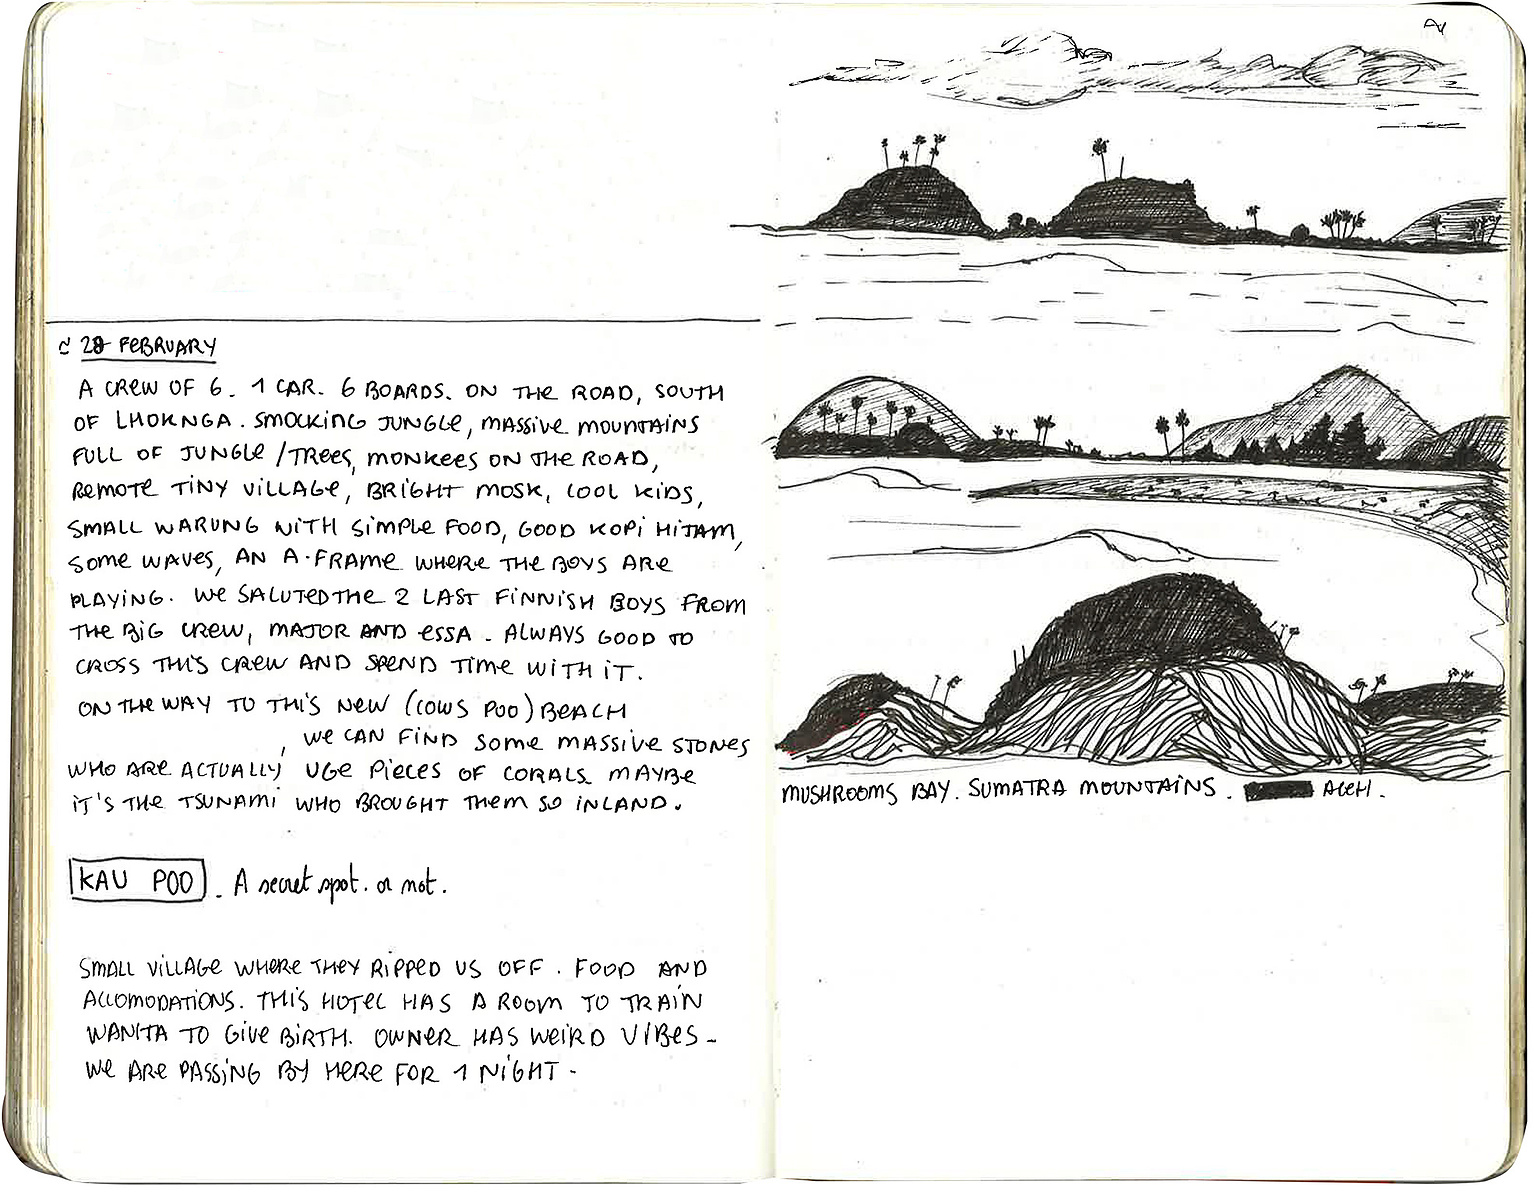 ~ 28 FEBRUARY
A CREW OF 6. 1 CAR. 6 BOARDS. ON THE ROAD, SOUTH
OF LHOKNGA. SMOCKING JUNGLE, MASSIVE MOUNTAINS
FULL OF JUNGLE / TREES, MONKEES ON THE ROAD,
REMOTE TINY VILLAGE, BRIGHT MOSK, COOL KIDS,
SMALL WARUNG WITH SIMPLE FOOD, GOOD KOPI HITAM,
SOME WAVES, AN A-FRAME WHERE THE BOYS ARE
PLAYING. WE SALUTED THE 2 LAST FINNISH BOYS FROM
THE BIG CREW, MAJOR AND ESSA. ALWAYS GOOD TO
CROSS THIS CREW AND SPEND TIME WITH IT.
ON THE WAY TO THIS NEW (COWS POO) BEACH
, WE CAN FIND SOME MASSIVE STONES
WHO ARE ACTUALLY UGE PIECES OF CORALS. MAYBE
IT'S THE TSUNAMI WHO BROUGHT THEM SO INLAND.
KAU POO. A secret spot. or not.
SMALL VILLAGE WHERE THEY RIPPED US OFF. FOOD AND
ACCOMODATIONS. THIS HOTEL HAS A ROOM TO TRAIN
WANITA TO GIVE BIRTH. OWNER HAS WEIRD VIBES -
WE ARE PASSING BY HERE FOR 1 NIGHT -
MUSHROOMS BAY. SUMATRA MOUNTAINS. ACEH.